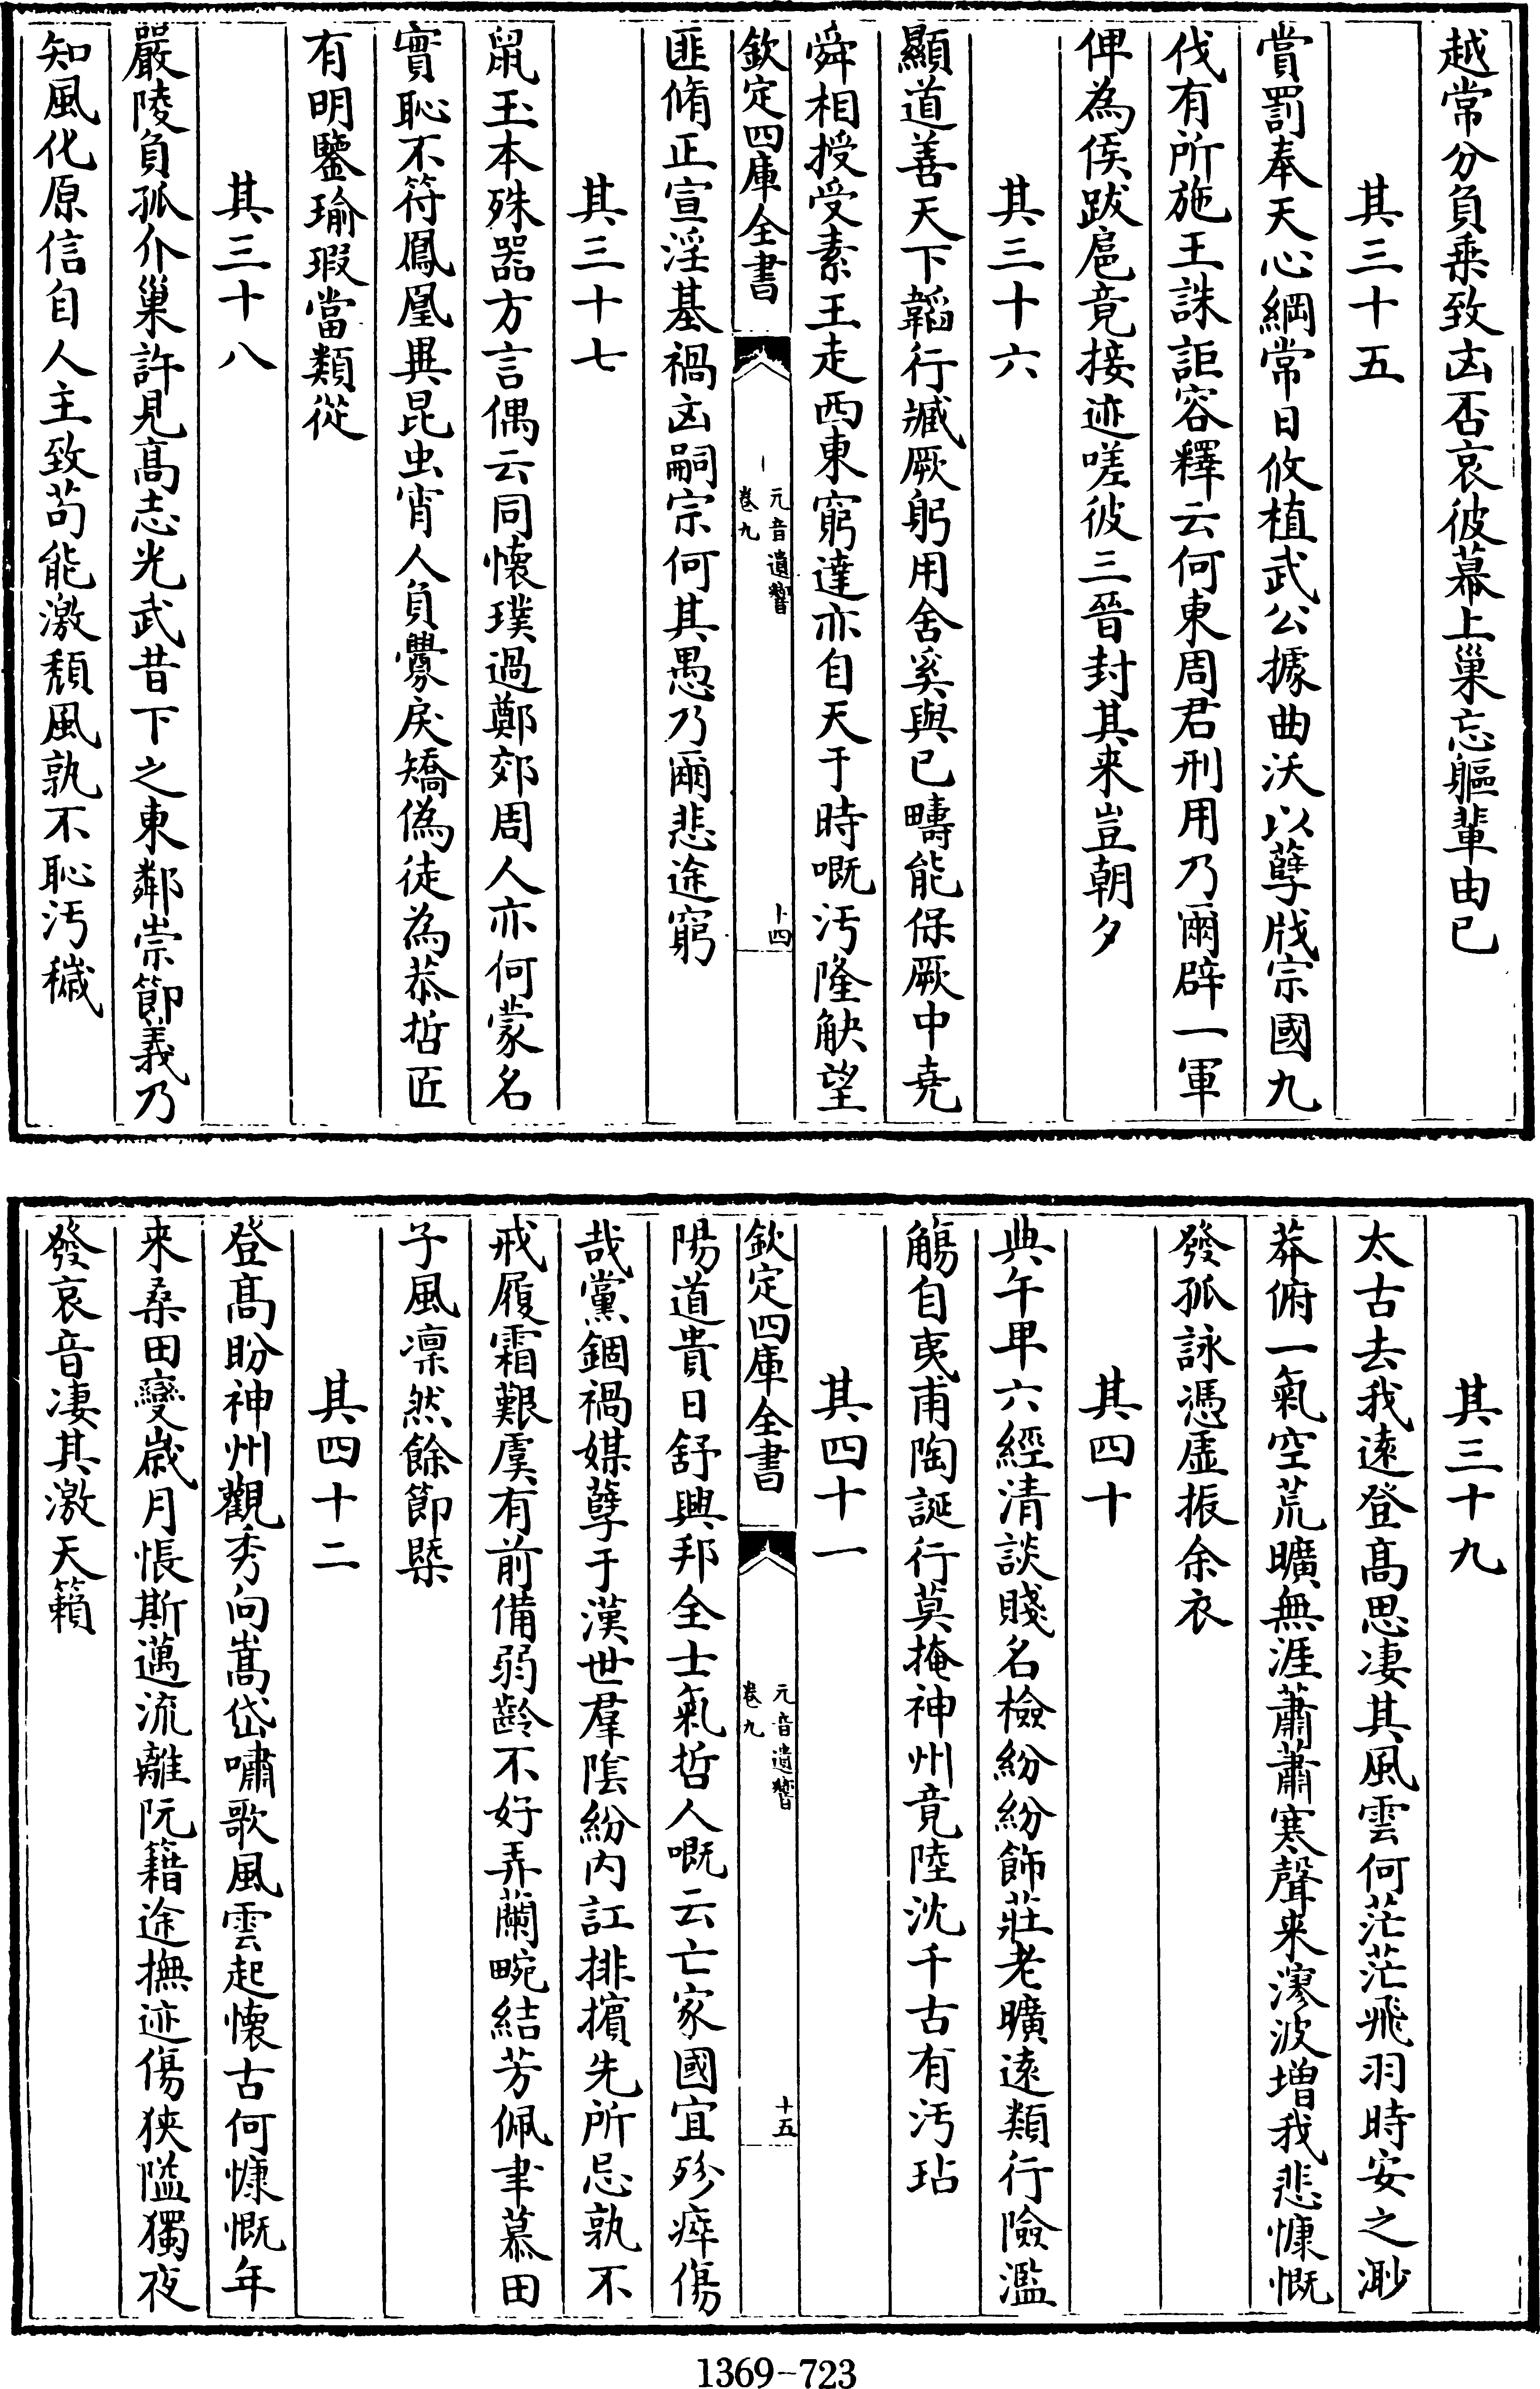 越常分負乗致凶否哀彼幕上巢忘軀輩由已
其三十五
賞罰奉天心綱常日攸植武公據曲沃以孽戕宗國九
伐有所施王誅詎容釋云何東周君刑用乃爾辟一軍
俾為侯跋扈竟接迹嗟彼三晉封其来豈朝夕
其三十六
顯道善天下韜行臧厥躬用舍奚與已疇能保厥中堯
舜相授受素王走西東窮達亦自天于時嘅汚隆觖望
欽定四庫全書
元音遺響
卷九
十四
匪脩正宣淫基禍凶嗣宗何其愚乃爾悲途窮
其三十七
鼠玉本殊器方言偶云同懷璞過鄭郊周人亦何蒙名
實恥不符鳳凰異昆虫宵人負釁戾矯偽徒為恭哲匠
有明鑒瑜瑕當類從
其三十八
嚴陵負孤介巢許見髙志光武昔下之東鄰崇節義乃
知風化原信自人主致苟能激頽風孰不恥汚穢
其三十九
太古去我逺登髙思凄其風雲何茫茫飛羽時安之渺
莽俯一氣空荒曠無涯蕭蕭寒聲来漻波增我悲慷慨
發孤詠憑虚振余衣
其四十
典午卑六經清談賤名檢紛紛飾莊老曠逺類行險濫
觴自夷甫陶誕行莫掩神州竟陸沈千古有汚玷
其四十一
欽定四庫全書
元音遺響
卷九
十五
陽道貴日舒興邦全士氣哲人嘅云亡家國宜殄瘁傷
哉黨錮禍媒孽于漢世羣隂紛内訌排擯先所忌孰不
戒履霜艱虞有前備弱齡不好弄蘭畹結芳佩聿慕田
子風凛然餘節槩
其四十二
登髙盼神州觀秀向嵩岱嘯歌風雲起懷古何慷慨年
来桑田變歲月悵斯邁流離阮籍途撫迹傷狹隘獨夜
發哀音凄其激天籟
1369-723